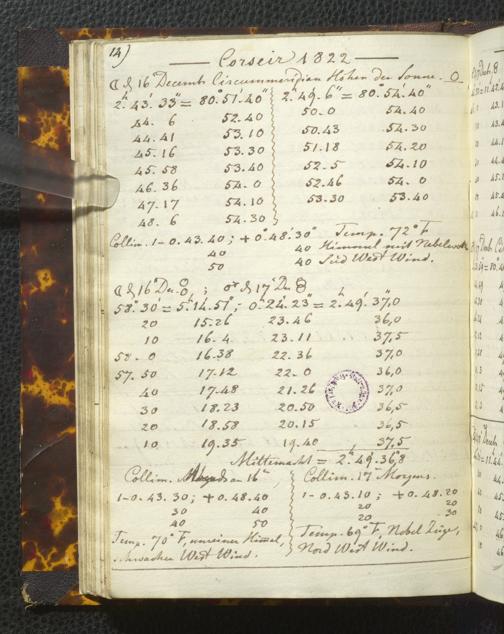 14)
Corseir 1822
☾ d 16 Decemb Circummeridian Höhen der Sonne. O
2. 43. 33" = 80°. 51'. 40" 2. 49. 6" = 80°. 54. 40"
44. 6 52. 40 50. 0 54. 40
44. 41 53. 10 50. 43 54. 30
45. 16 53. 30 51. 18 54. 20
45. 58 53. 40 52. 5 54. 10
46. 36 54. 0 52. 46 54. 0
47. 17 54. 10 53. 30 53. 40
48. 6 54. 30
Collim. 1 - 0. 43. 40; + 0. 48. 30" Temp. 72° F
40 40 Himmel mit
50 40 Süd West Wind.
☾ d 16 Dec. ; ♂ d 17 Dec
58°. 30' = 5. 14. 57"; 0. 24. 23" = 2. 49. 37,0
20 15. 26 23. 46 36,0
10 16. 4. 23. 11 37,5
58 - 0 16. 38 22. 36 37,0
57. 50 17. 12 22. 0 36,0
40 17. 48 21. 26 37,0
30 18. 23 20. 50 36,5
20 18. 58 20. 15 36,5
10 19. 35 19. 40 37,5
Mitternacht = 2. 49. 36,8
Collim. 16 Collim. 17 Morgens.
1 - 0. 43. 30; + 0. 48. 40 1 - 0. 43. 10; + 0. 48. 20
30 40 20 20
40 50 20 30
Temp. 70° F, unreiner Himel, Temp. 69° F, Nebel Züge,
schwacher West Wind. Nord West Wind.